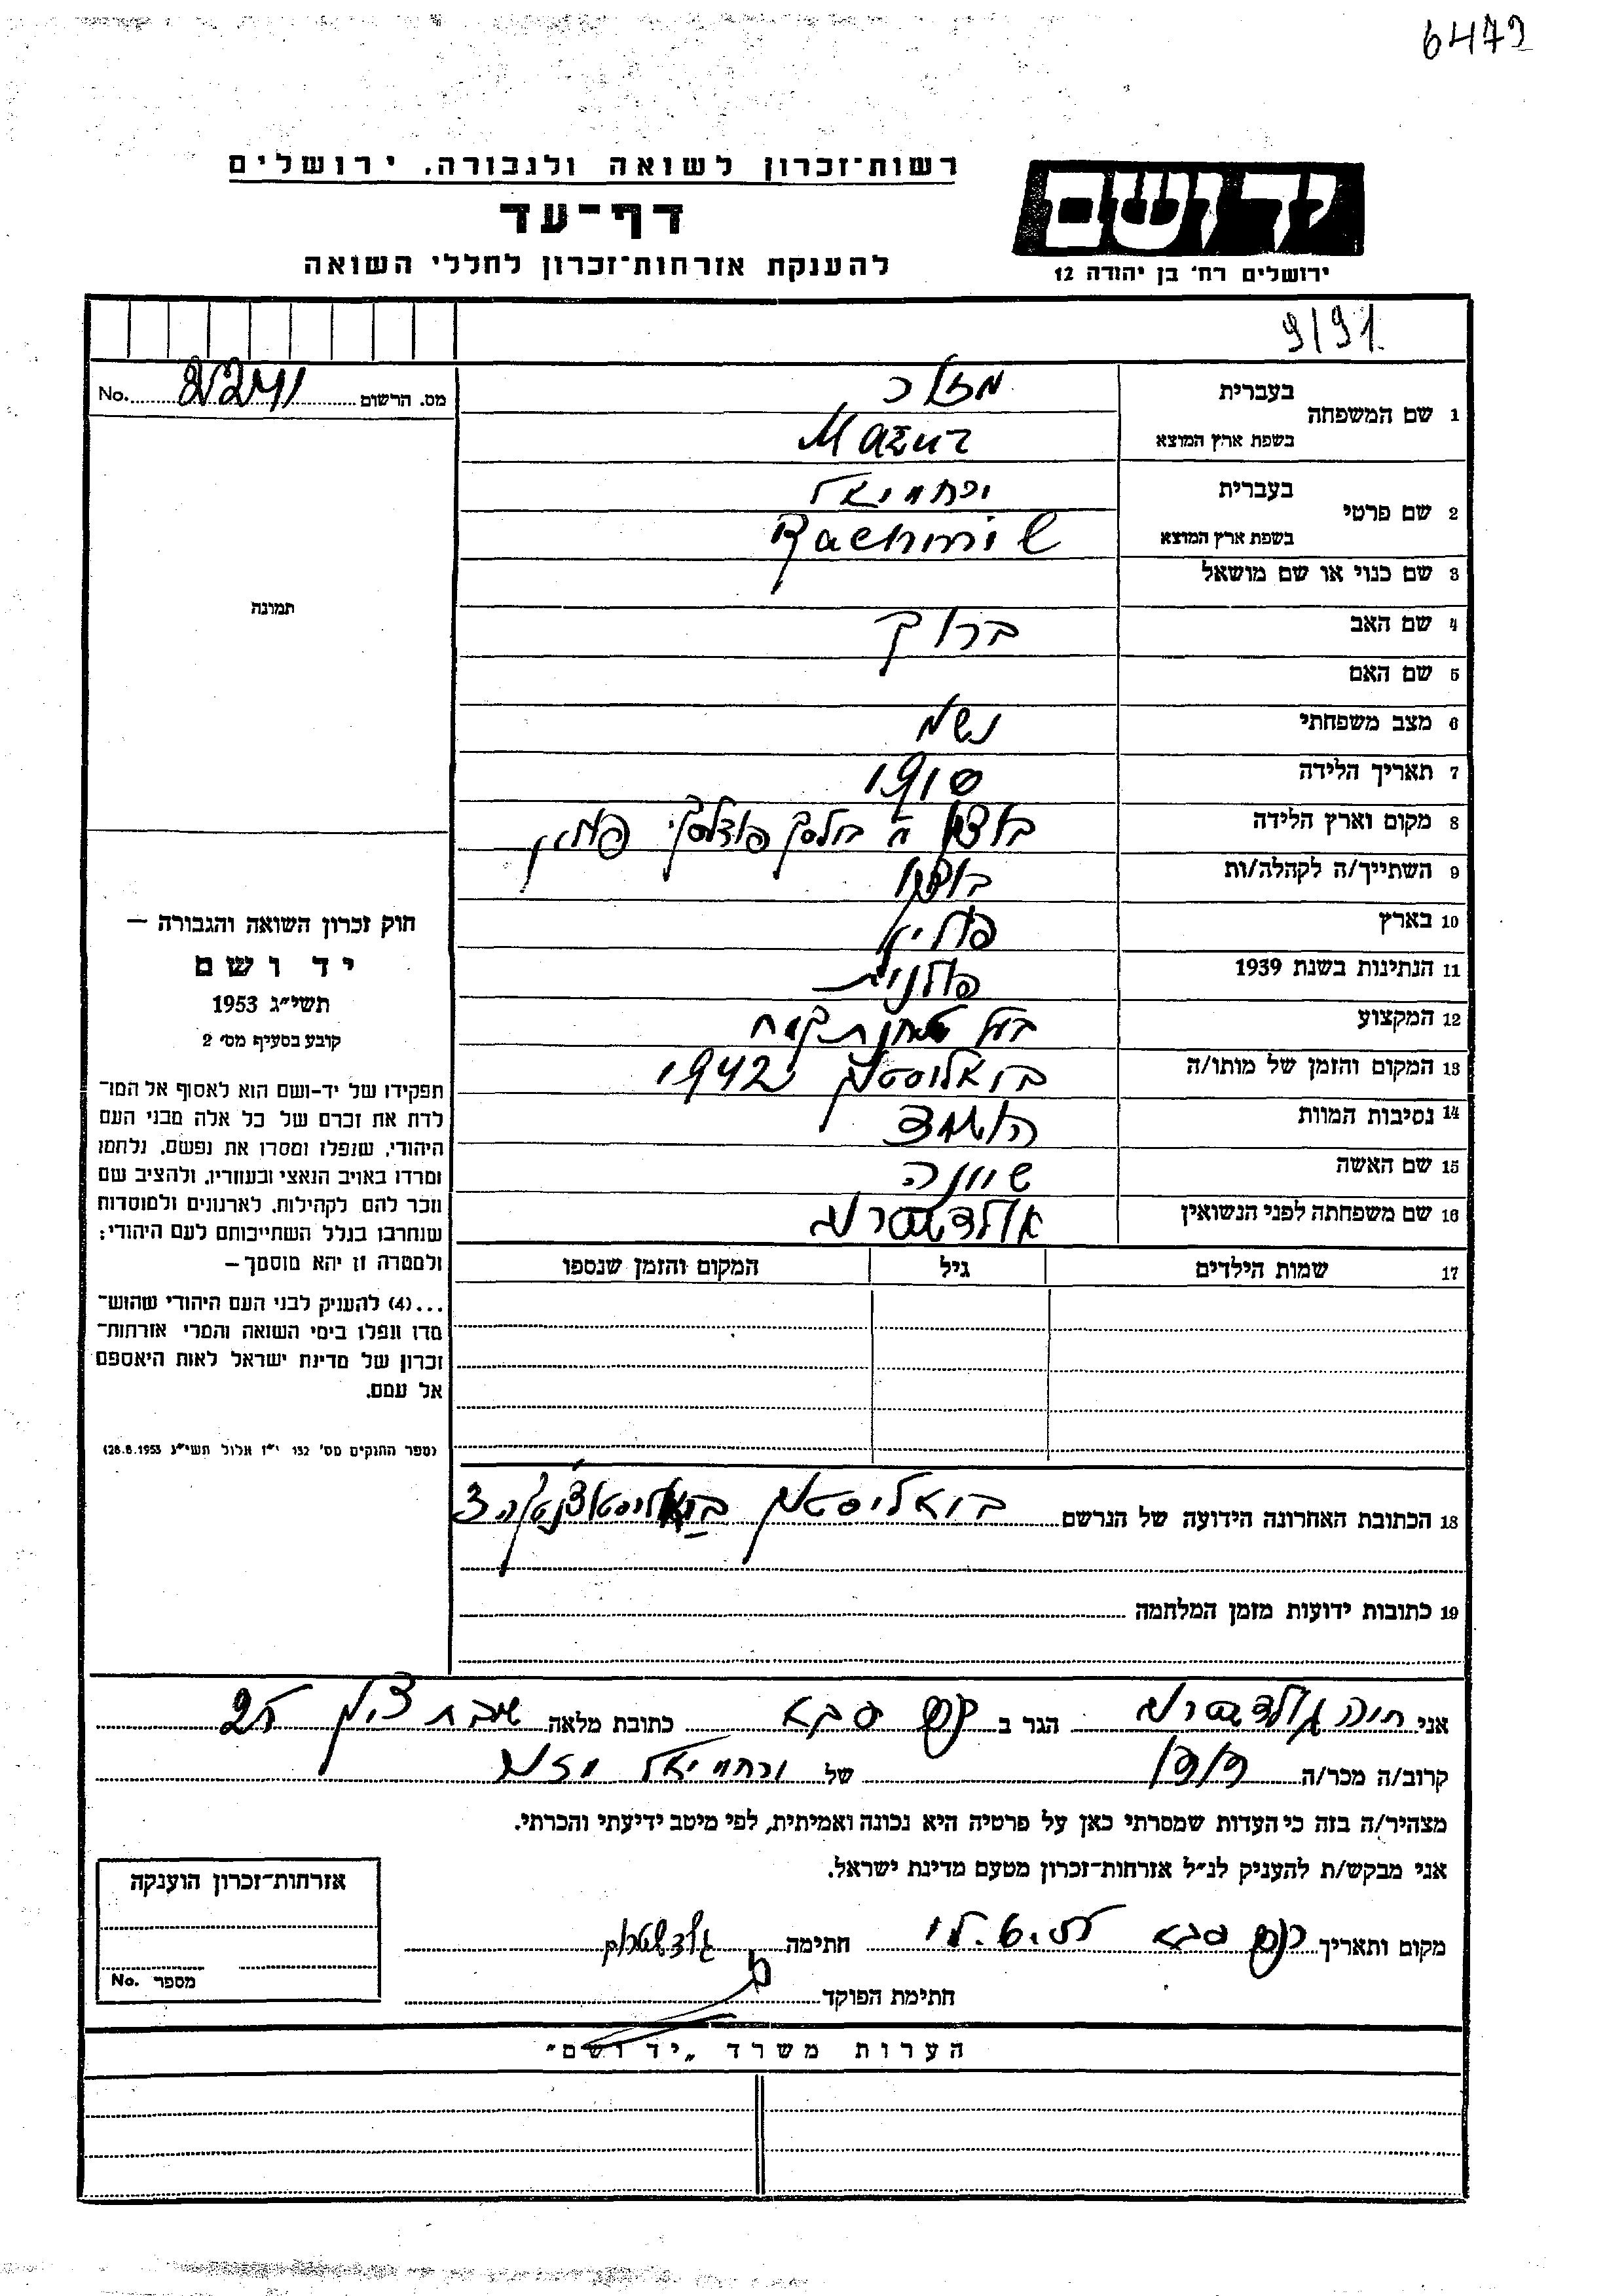 6479
רשות־זכרון לשואה ולגבורה, ירושלים
דף־עד
להענקת אזרחות־זכרון לחללי השואה
יד ושם
ירושלים רח' בן יהודה 12
9/91
No. 82241 מס. הרשום
1 שם המשפחה
בעברית מזור
בשפת ארץ המוצא Mazur
2 שם פרטי
בעברית ירחמיאל
בשפת ארץ המוצא Rachmil
3 שם כנוי או שם מושאל
4 שם האב ברוך
5 שם האם
6 מצב משפחתי נשוי
7 תאריך הלידה 1910
8 מקום וארץ הלידה פולין
9 השתייך/ה לקהלה/ות
10 בארץ פולין
11 הנתינות בשנת 1939 פולנית
12 המקצוע בעל טחנת קמח
13 המקום והזמן של מותו/ה ביאליסטוק 1942
14 נסיבות המוות הושמד
15 שם האשה
16 שם משפחתה לפני הנשואין
17 שמות הילדים גיל המקום והזמן שנספו
18 הכתובת האחרונה הידועה של הנרשם ביאליסטוק
19 כתובות ידועות מזמן המלחמה
תמונה
חוק זכרון השואה והגבורה –
יד ושם
תשי"ג 1953
קובע בסעיף מס' 2
תפקידו של יד-ושם הוא לאסוף אל המו־
לדת את זכרם של כל אלה מבני העם
היהודי, שנפלו ומסרו את נפשם, נלחמו
ומרדו באויב הנאצי ובעוזריו, ולהציב שם
וזכר להם לקהילות, לארגונים ולמוסדות
שנחרבו בגלל השתייכותם לעם היהודי;
ולמטרה זו יהא מוסמך –
...(4) להעניק לבני העם היהודי שהוש־
מדו ונפלו בימי השואה והמרי אזרחות־
זכרון של מדינת ישראל לאות היאספם
אל עמם.
(ספר החוקים מס' 132 י"ז אלול תשי"ג 28.8.1953)
אני חיה גולדשטרום הגר ב כפר סבא כתובת מלאה שיבת ציון 25
קרוב/ה מכר/ה של ירחמיאל מזור
מצהיר/ה בזה כי העדות שמסרתי כאן על פרטיה היא נכונה ואמיתית, לפי מיטב ידיעתי והכרתי.
אני מבקש/ת להעניק לנ"ל אזרחות-זכרון מטעם מדינת ישראל.
מקום ותאריך כפר סבא חתימה גולדשטרום
חתימת הפוקד
אזרחות־זכרון הוענקה
No. מספר
הערות משרד „יד ושם"